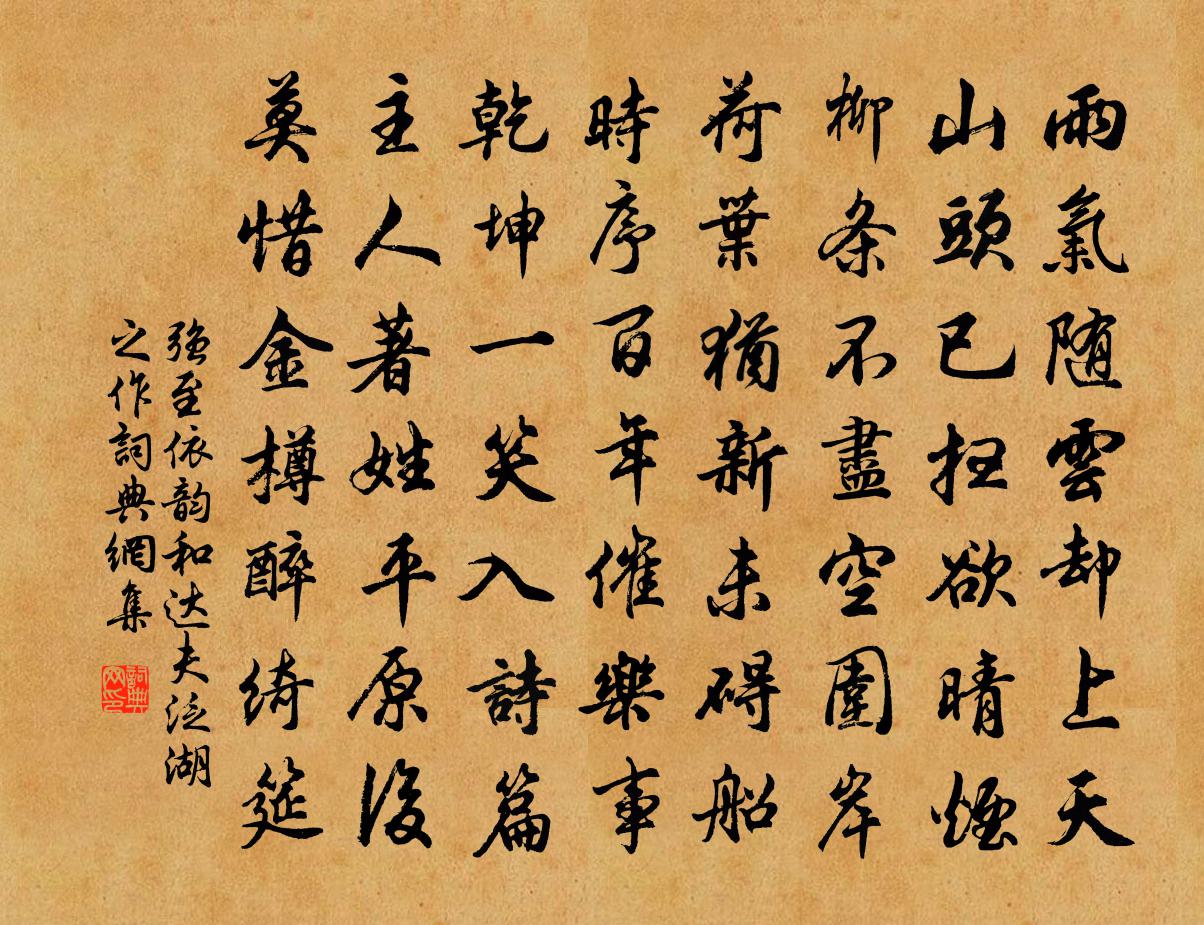 雨氣随雲却上天
山頭已扫欲晴煙
柳条不盡空圍岸
荷葉猶新未碍船
時序百年催樂事
乾坤一笑入詩篇
主人著姓平原後
莫惜金樽醉綺筵
强至依韵和达夫泛湖
之作詞典網集
詞典
网印